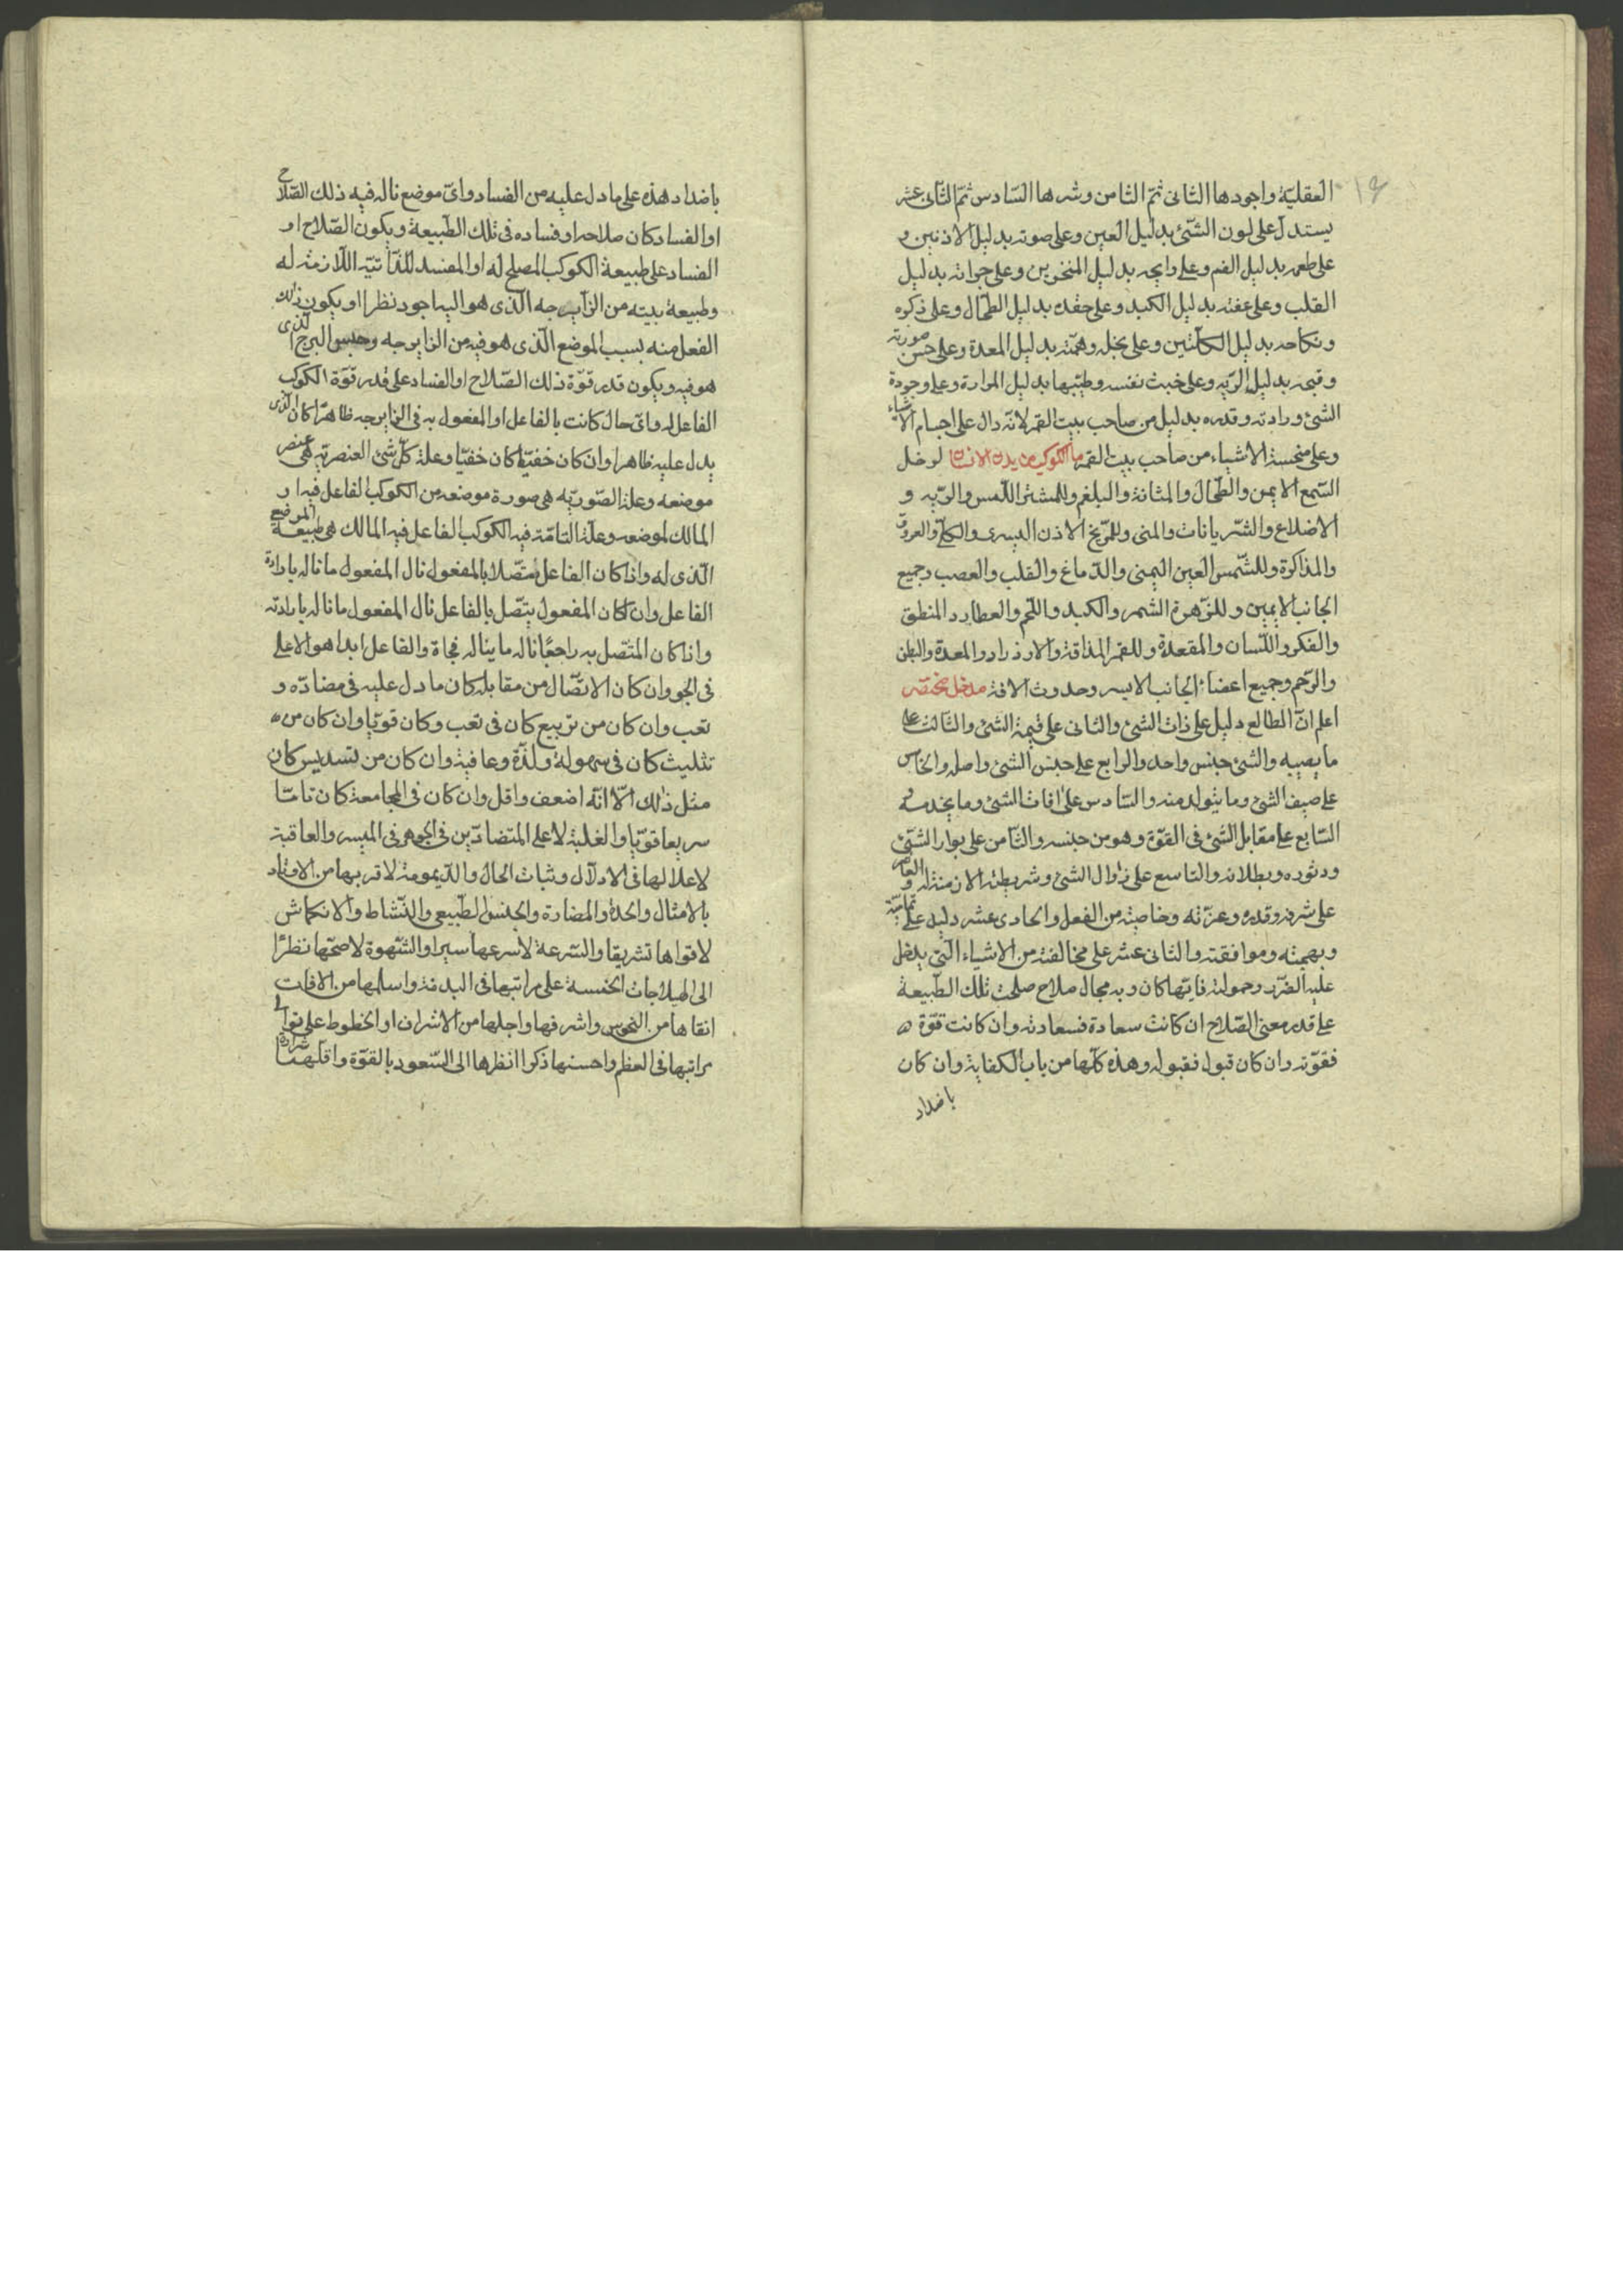 ١٤
العقليّة واجودها الثانى ثمّ الثامن وشرها السّادس ثمّ الثّانى عشر
يستدل على لون الشّئ بدليل العين وعلى صوته بدليل الاذنين و
على طعمه بدليل الفم وعلى رايحه بدليل المنخرين وعلى جراته بدليل
القلب وعلى عفته بدليل الكبد وعلى حقده بدليل الطحال وعلى ذكره
ونكاحه بدليل الكليتين وعلى بخله وهمّته بدليل المعدة وعلى حسن صورته
وقبحه بدليل الريّه وعلى خبث نفسه وطيّبها بدليل المرارة وعلى وجودة
الشئ وردائه وقدره بدليل من صاحب بيت القمر لانّه دال على اجسام الاشياء
وعلى منحسة الاشياء من صاحب بيت القمر ما للكوكب من بدن الانسان لزحل
السّمع الايمن والطحال والمثانة والبلغم وللمشترى اللّمس والريّه و
الاضلاع والشّريانات والمنى وللمرّيخ الاذن اليسرى والكلى والعروق
والمذاكرة وللشّمس العين اليمنى والدّماغ والقلب والعصب وجميع
الجانب الايمين وللزّهرة الشم والكبد واللّحم والعطارد المنطق
والفكر واللّسان والمقعدة وللقمر المذاقة والازدراد والمعدة والبطن
والرّحم وجميع اعضاء الجانب الايسر وحدوث الافة مدخل مختصر
اعلم انّ الطالع دليل على ذات الشئ والثانى على قيمة الشئ والثّالث على
ما يصيبه والشئ جنس واحد والرابع على جنس الشئ واصله والخامس
على صيف الشئ وما يتولد منه والسّادس على افات الشئ وما يخدمه و
السّابع على مقابل الشئ فى القوّة وهو من جنسه والثّامن على بوار الشّئ
ودثوره وبطلانه والتاسع على زوال الشئ وشريطة الازمنة له والعاشر
على شرفه وقدره وعزّته وخاصيته من الفعل والحادى عشر دليل على تماميّة
وبهجته وموافقته والثانى عشر على مخالفته من الاشياء الّتى يدخل
عليه الضّرر وحمولة فايّها كان وبه مجال صلاح صلحت تلك الطّبيعة
على قدر معنى الصّلاح ان كانت سعادة فسعادته وان كانت قوّة
فقوّته وان كان قبول فقبوله وهذه كلّها من باب الكفاية وان كان
باضداد
باضداد هذه على ما دل عليه من الفساد واىّ موضع ناله فيه ذلك الصّلاح
او الفساد كان صلاحه او فساده فى تلك الطّبيعة ويكون الصّلاح او
الفساد على طبيعة الكوكب المصلح له او المفسد للذّاتيّة اللّازمة له
وطبيعة بيته من الزّايرجه الّذى هو اليها جود نظرا او يكون ذلك
الفعل منه بسبب الموضع الّذى هو فيه من الزايرجه وجنس البرج الّذى
هو فيه ويكون قدر قوّة ذلك الصّلاح او الفساد على قدر قوّة الكوكب
الفاعل له واىّ حال كانت بالفاعل او المفعول به فى الزايرجه ظاهرا كان الّذى
يدل عليه ظاهرا وان كان خفيّا كان خفيّا وعلة كلّ شئ العنصريّه هى عنصر
موضعه وعلة الصّوريّه هى صورة موضعه من الكوكب الفاعل فيه او
المالك لموضعه وعلّة التامّة فيه الكوكب الفاعل فيه المالك هى طبيعة الموضع
الّذى له واذا كان الفاعل متّصلا بالمفعول نال المفعول ما ناله بارادة
الفاعل وان كان المفعول يتّصل بالفاعل نال المفعول ما ناله بارادته
واذا كان المتّصل به راجعًا ناله ما يناله فجاة والفاعل ابدا هو الاعلى
فى الجو وان كان الاتّصال من مقابلة كان ما دل عليه فى مضادّه و
تعب وان كان من تربيع كان فى تعب وكان قويّا وان كان من
تثليث كان فى سهولة ولذّة وعافية وان كان من تسديس كان
مثل ذلك الّا انّه اضعف واقل وان كان فى المجامعة كان تامّا
سريعا قويّا والغلبة لاعلى المتضادّين فى الجوهر فى الميسر والعاقبة
لاعلالها فى الادلال وثبات الحال والدّيمومة لاقربها من الاوتاد
بالامثال والحدة والمضارة والجنس الطّبيعى والنّشاط والانكماش
لاقواها تشريقا والسّرعة لاسرعها سيرا والشّهوة لاصحّها نظرًا
الى الهيلاجات الخمسة على مراتبها فى البدنة واسلمها من الافات
انقاها من النحوس واشرفها واجلها من الاشراف او الحظوط على توالى
مراتبها فى العظم واحسنها ذكرا انظرها الى السّعود بالقوّة واقلّهمّا